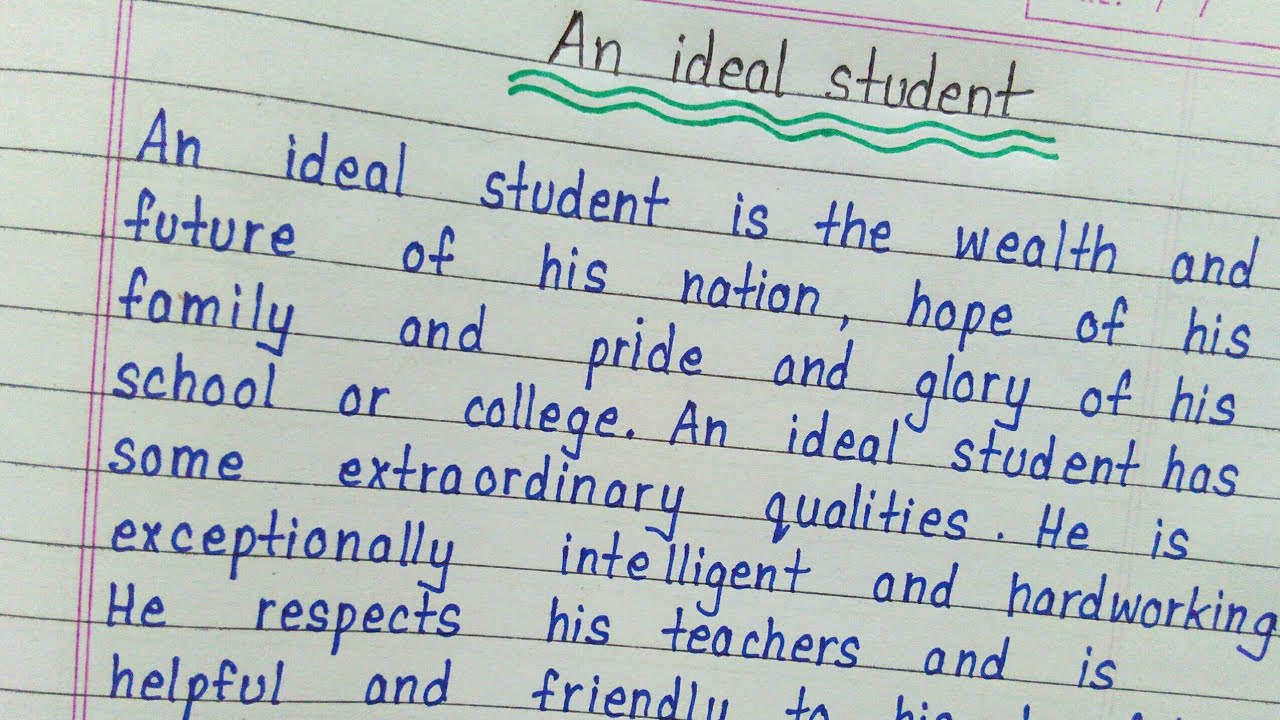 An ideal student
An ideal student is the wealth and
future of his nation, hope of his
family and pride and glory of his
school or college. An ideal student has
some extraordinary qualities. He is
exceptionally intelligent and hardworking
He respects his teachers and is
helpful and friendly to his